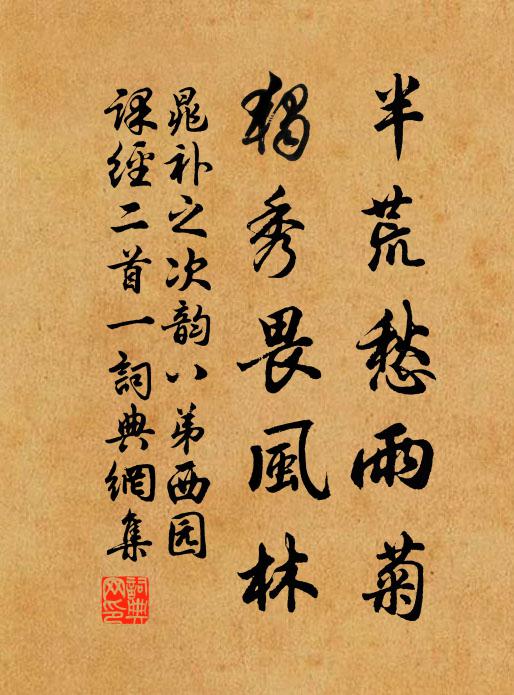 半荒愁雨菊
獨秀畏風林
晁补之次韵八弟西园
課經二首一詞典網集
詞典網印